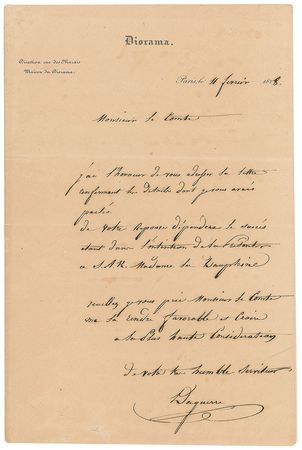 Diorama.
Direction rue des Marais
Maison du Diorama.
Paris, le 11 février 1828.
Monsieur le Comte
j'ai l'honneur de vous adresser la lettre
contenant les détails dont je vous avais
parlés
de votre réponse dépendra le succès
étant dans l'intention de la
a S.A.R. Madame la Dauphine
veuillez je vous prie Monsieur le Comte
me la rendre favorable et croire
a la plus haute Considération
de votre très humble Serviteur
Daguerre